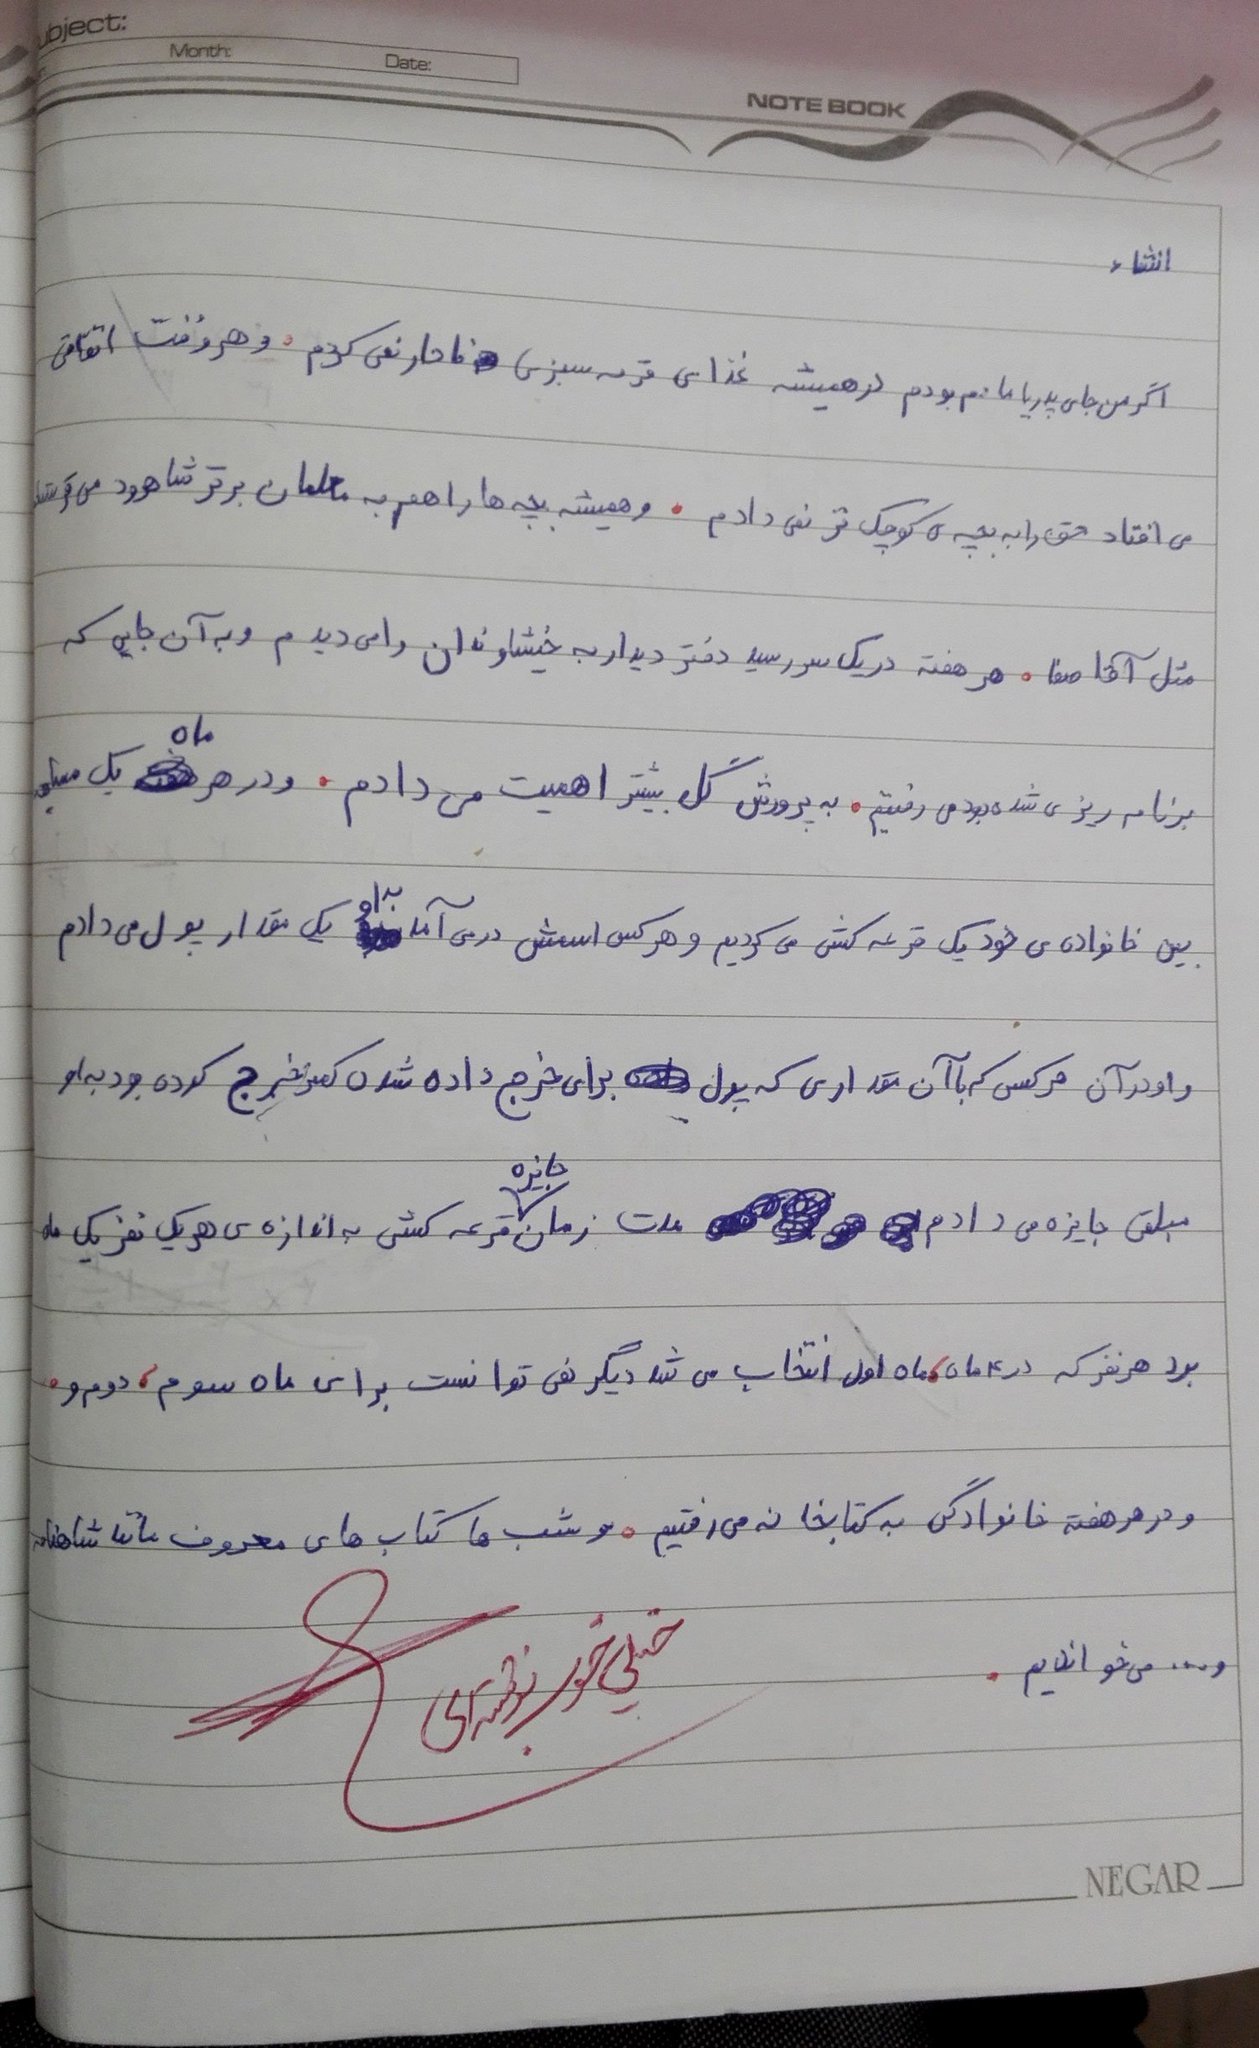 Subject:
Month: Date:
NOTE BOOK
انشاء
اگر من جای پدر یا مادرم بودم در همیشه غذا ی قرمه سبزی ناهار نمی کردم . و هر وقت اتفاقی
می افتاد حق را به بچه ی کوچک تر نمی دادم . و همیشه بچه ها را هم به معلمان برتر شاهرود می فرستادم
مثل آقا صفا . هر هفته در یک سررسید دفتر دیدار به خیشاوندان را می دیدم و به آن جایی که
برنامه ریزی شده بود می رفتیم . به پرورش گل بیشتر اهمیت می دادم . و در هر ماه یک مسابقه
بین خانواده ی خود یک قرعه کشی می کردیم و هر کس اسمش در می آمد به او یک مقدار پول می دادم
و او در آن هر کسی که با آن مقداری که پول برای خرج داده شده کمتر خرج کرده بود به او
مبلغی جایزه می دادم مدت زمان جایزه قرعه کشی به اندازه ی هر یک نفر یک ماه
بود هر نفر که در ۴ ماه، ماه اول انتخاب می شد دیگر نمی توانست برای ماه سوم ، دوم و .
و در هر هفته خانوادگی به کتابخانه می رفتیم . و شب ها کتاب های معروف مانند شاهنامه
و .... می خواندیم .
خیلی خوب نوشته ای
NEGAR